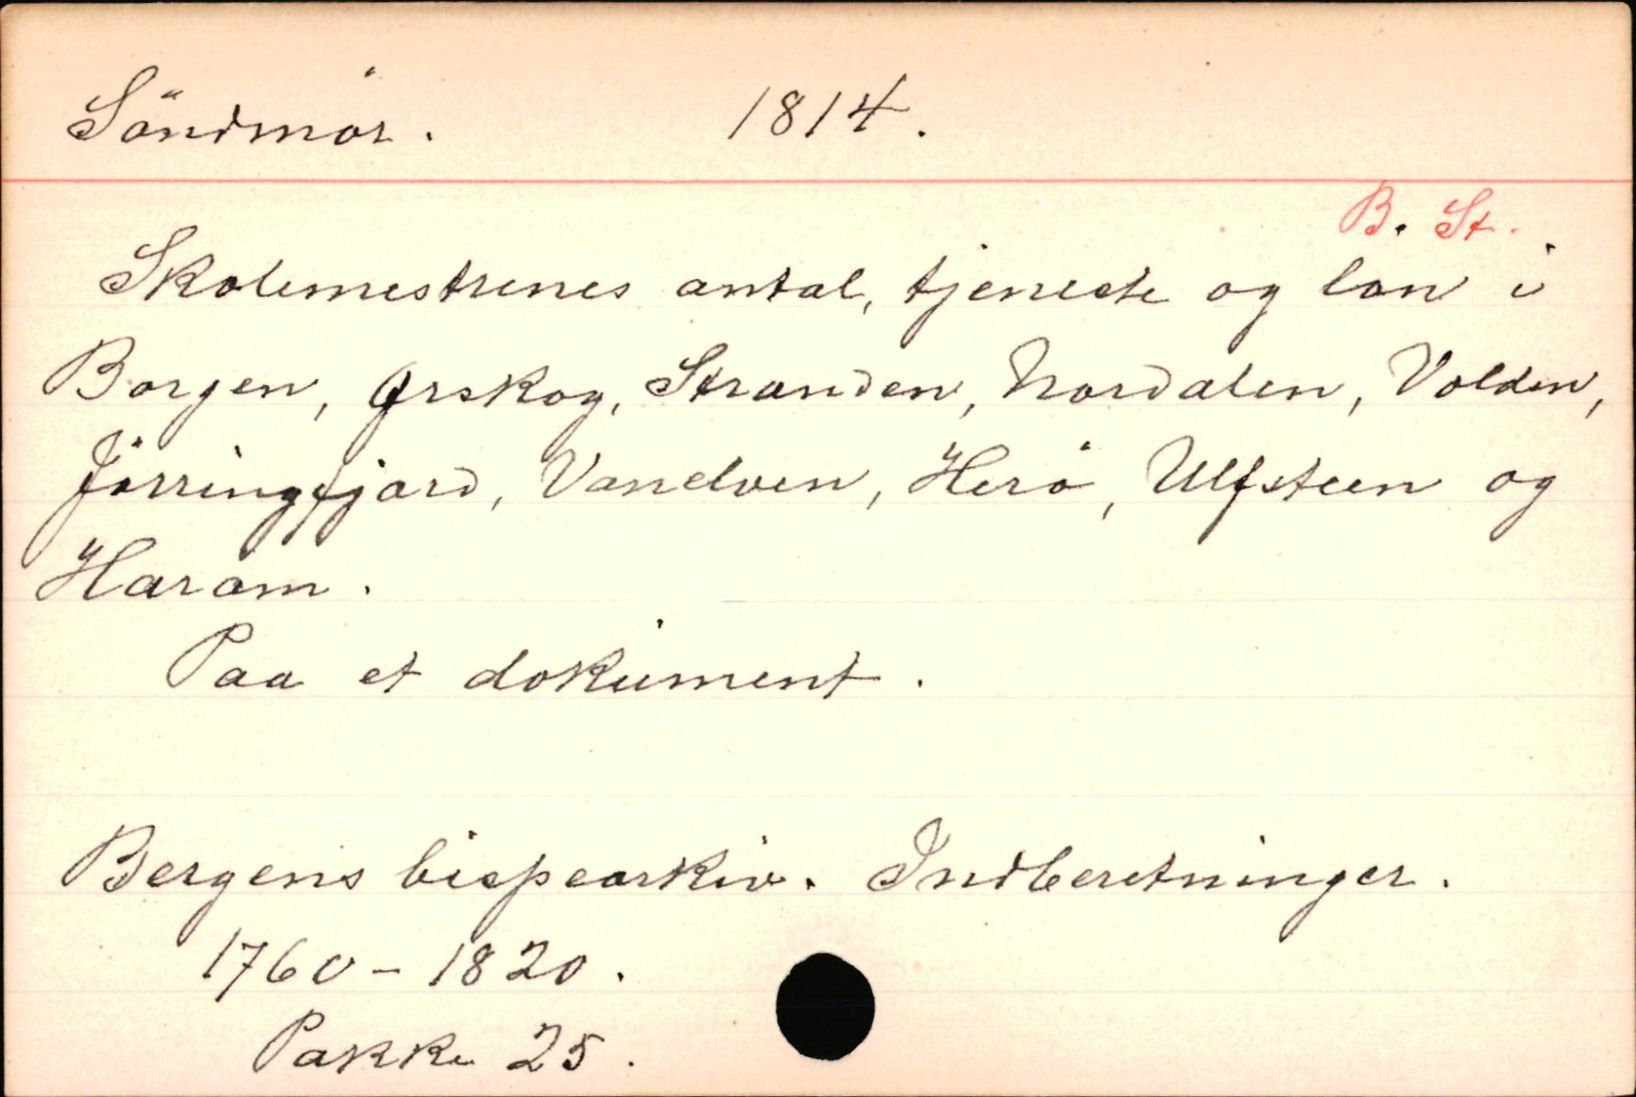 Söndmör. 1814.
B. St.
Skolemestrenes antal, tjeneste og lön i
Borgen, Ørskog, Stranden, Nordalen, Volden,
Jörringfjord, Vanelven, Herö, Ulfsteen og
Haram.
Paa et dokument.
Bergens bispearkiv. Indberetninger.
1760-1820.
Pakke 25.